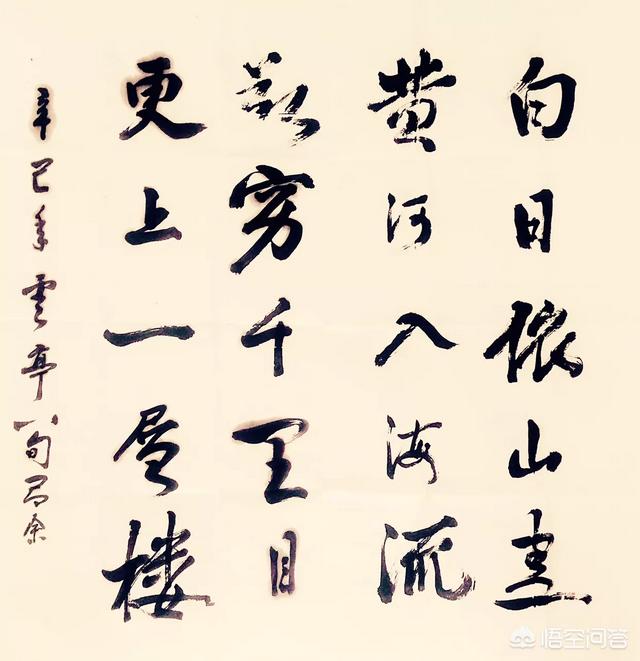 白日依山盡
黄河入海流
欲穷千里目
更上一层楼
辛巳年雲亭八旬余
悟空问答